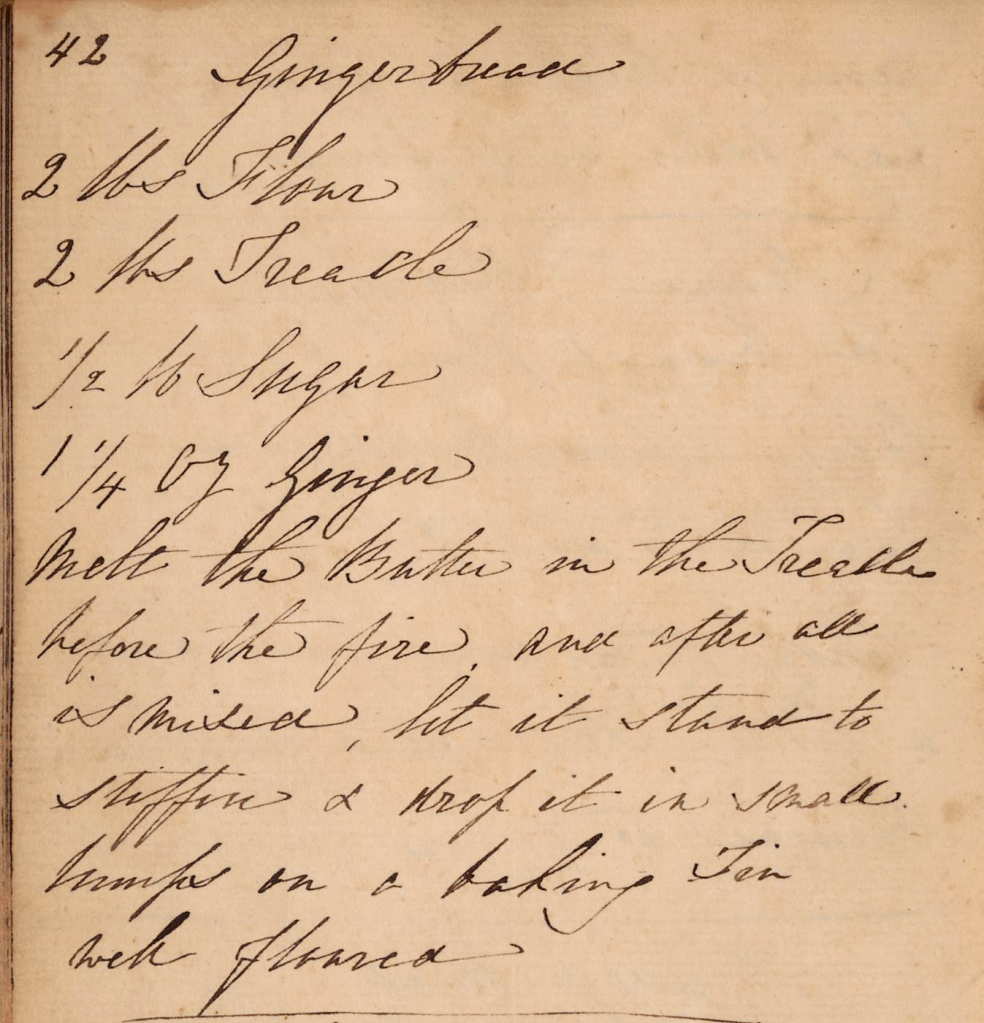 42
Gingerbread
2 lbs Flour
2 lbs Treacle
1/2 lb Sugar
1 1/4 Oz Ginger
Melt the Butter in the Treacle
before the fire, and after all
is mixed, let it stand to
stiffen & drop it in small
lumps on a baking Tin
well floured